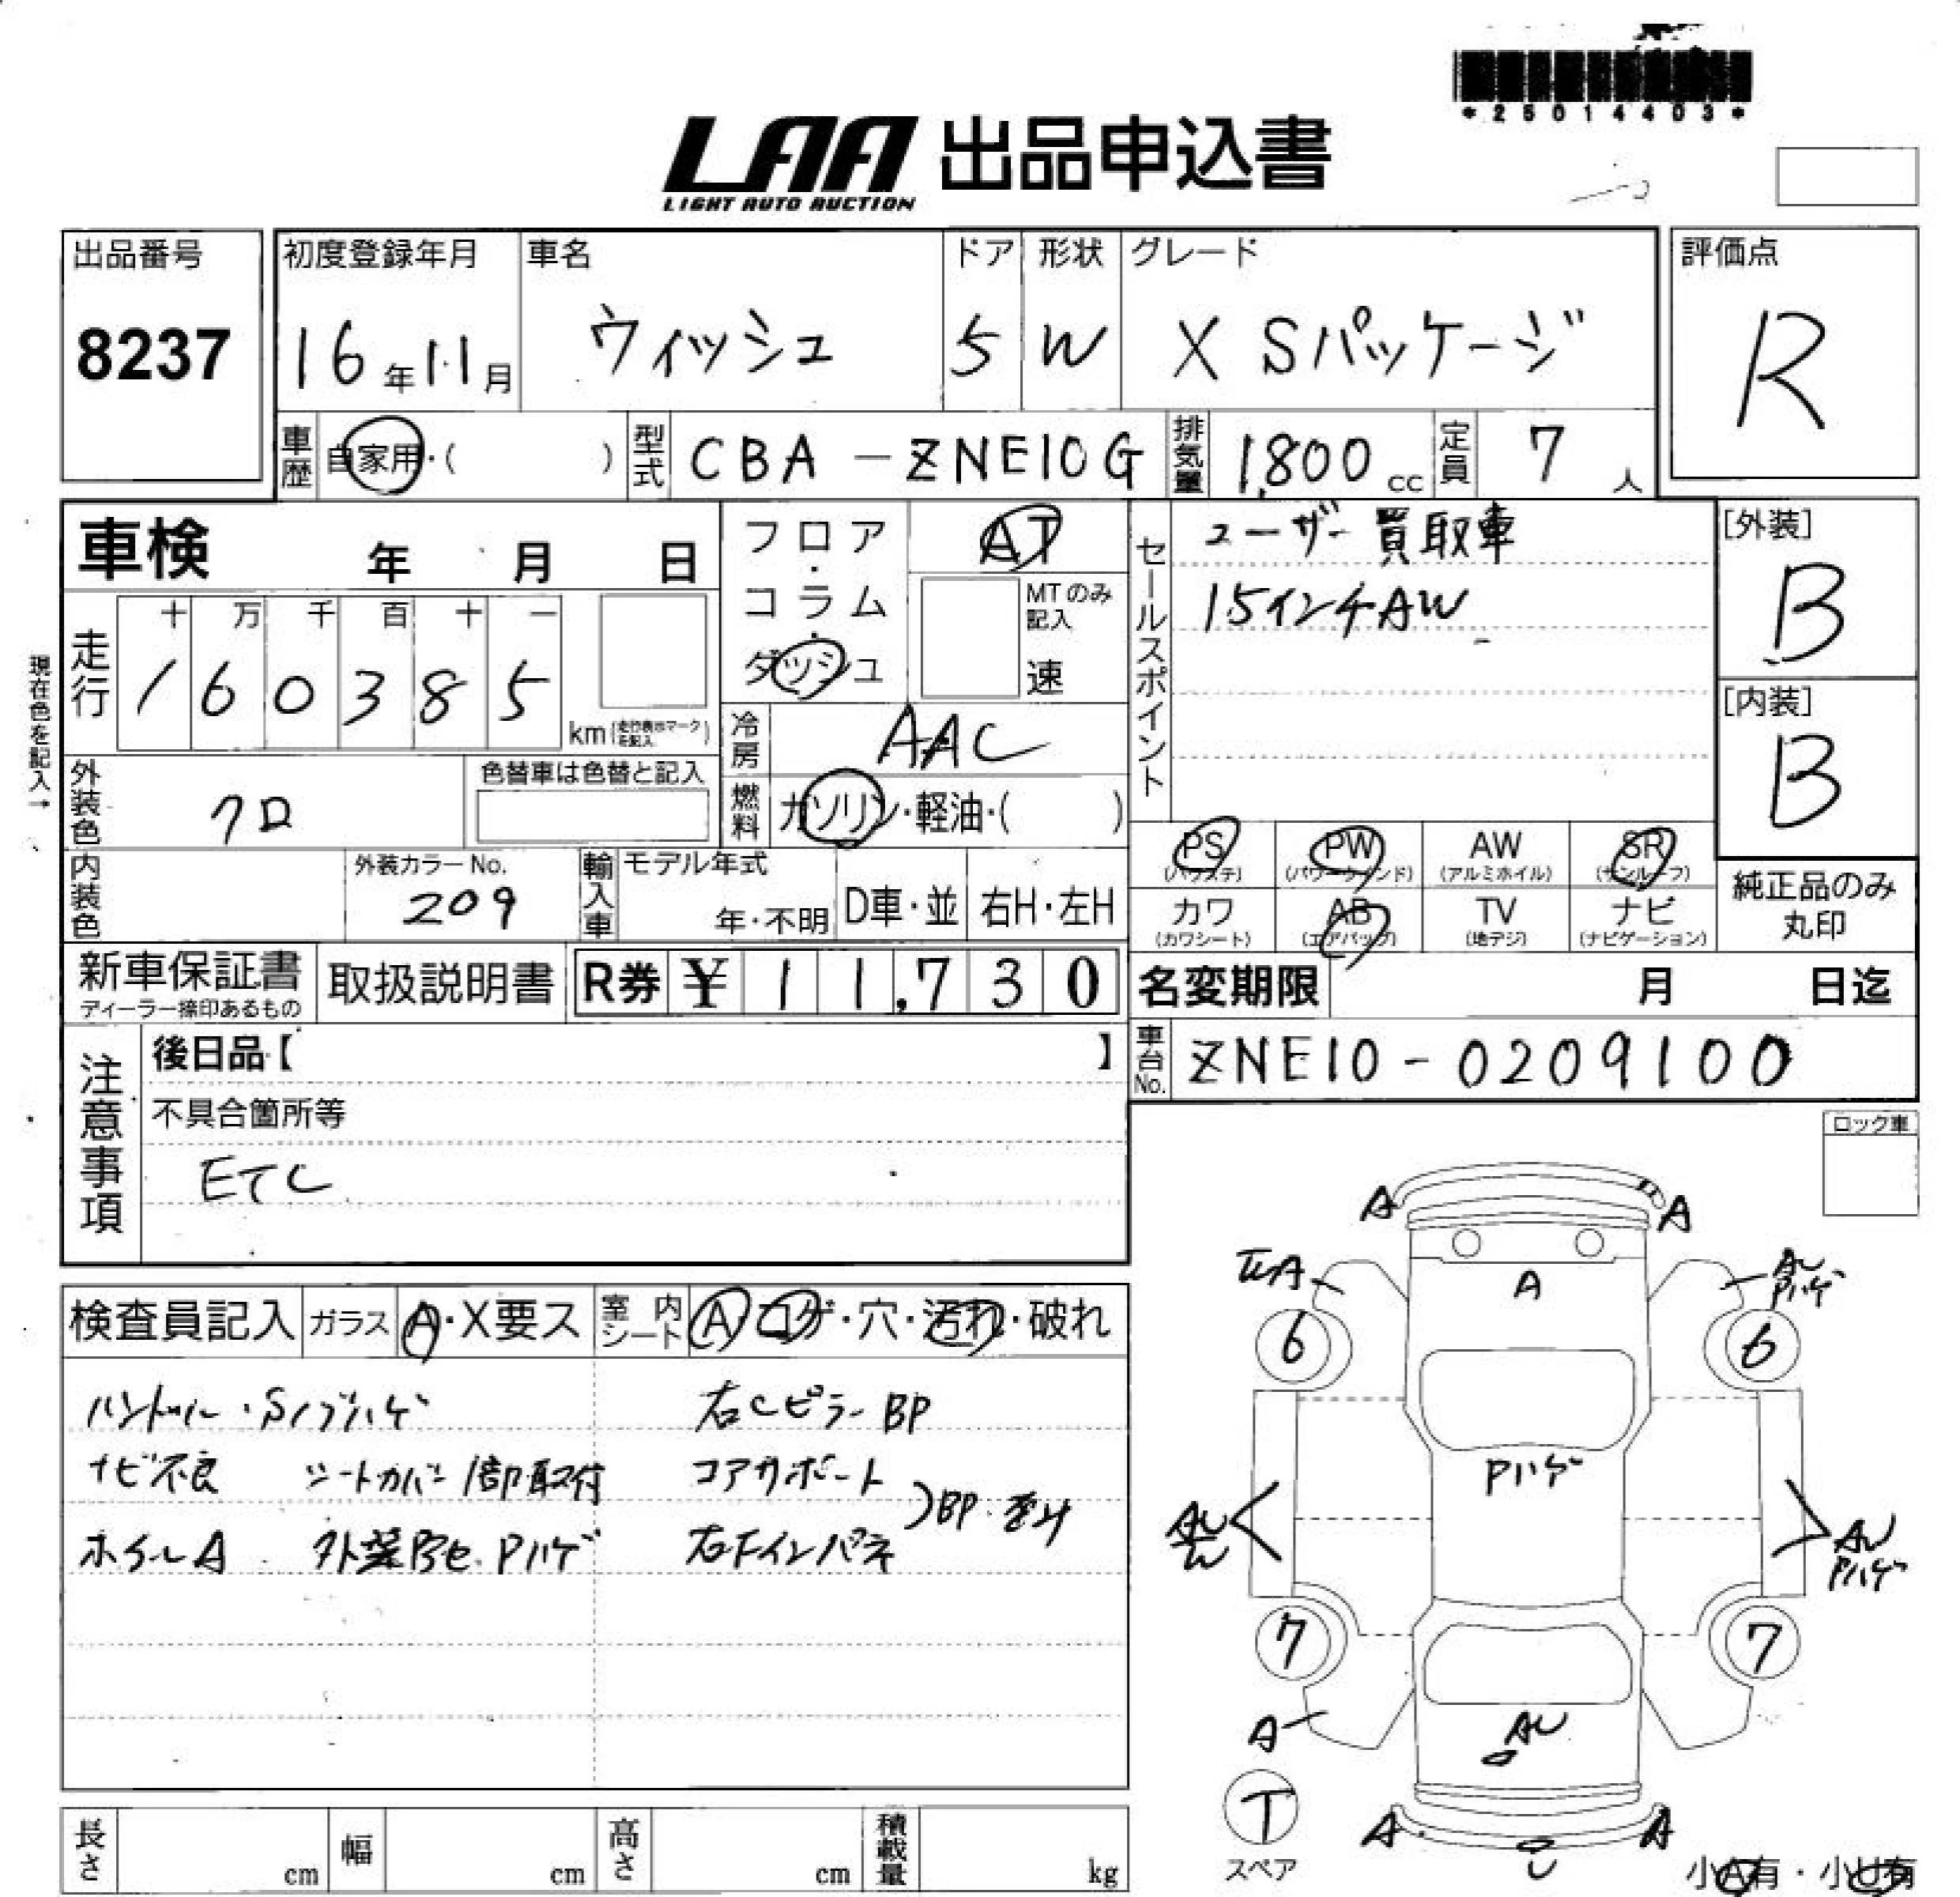 *25014403*
LAA 出品申込書
LIGHT AUTO AUCTION
出品番号
8237
初度登録年月
16年11月
車名
ウィッシュ
ドア
5
形状
W
グレード
X Sパッケージ
評価点
R
車歴
自家用・( )
型式
CBA-ZNE10G
排気量
1,800 cc
定員
7 人
車検 年 月 日
フロア・コラム・ダッシュ
AT
MTのみ記入
速
セールスポイント
ユーザー買取車
15インチAW
[外装]
B
[内装]
B
現在色を記入→
走行
十 万 千 百 十 一
1 6 0 3 8 5
km(走行表示マークを記入)
冷房
AAC
燃料
ガソリン・軽油・( )
外装色
クロ
色替車は色替と記入
内装色
外装カラーNo.
209
輸入車
モデル年式
年・不明
D車・並
右H・左H
PS
(パワステ)
PW
(パワーウインド)
AW
(アルミホイル)
SR
(サンルーフ)
カワ
(カワシート)
AB
(エアバッグ)
TV
(地デジ)
ナビ
(ナビゲーション)
純正品のみ
丸印
新車保証書
ディーラー捺印あるもの
取扱説明書
R券 ¥11,730
名変期限 月 日迄
車台No.
ZNE10-0209100
注意事項
後日品【 】
不具合箇所等
ETC
ロック車
検査員記入
ガラス
A・X要ス
室内シート
A コゲ・穴・汚れ・破れ
ハンドル・Sノブハゲ
右Cピラー BP
ナビ不良 シートカバー1部取付
コアサポート
ホイールA 外装色 Pハゲ
右Fインパネ
BP
A
A
A
A
AU
Pハゲ
6
6
Pハゲ
AU
AU
Pハゲ
7
7
A
AU
T
スペア
A
A
U
小A有・小U有
長さ cm
幅 cm
高さ cm
積載量 kg